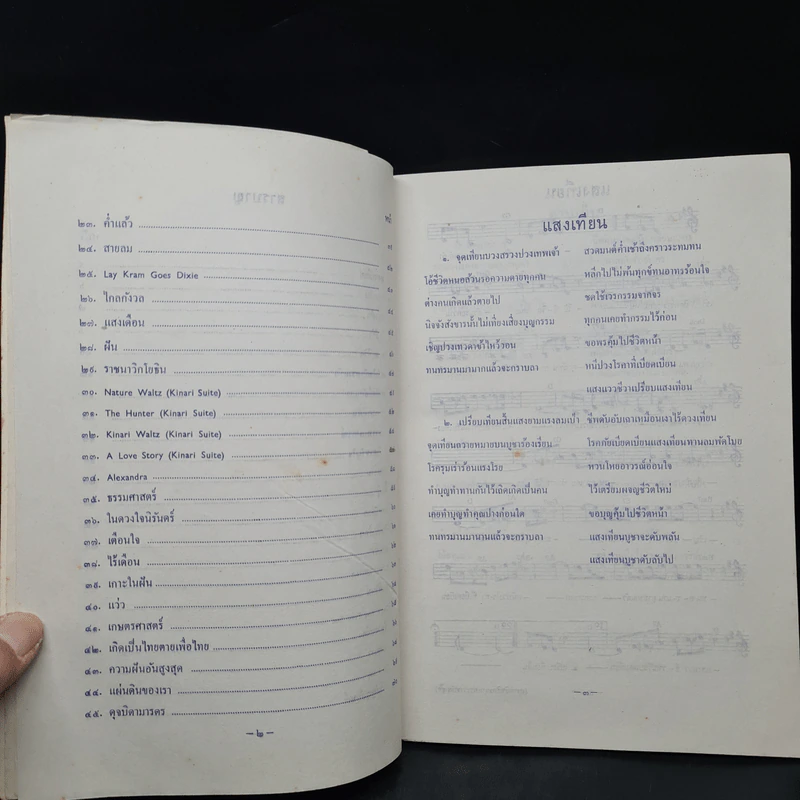 หน้า
๒๓. ค่ำแล้ว
๒๔. สายลม
๒๕. Lay Kram Goes Dixie
๒๖. ไกลกังวล
๒๗. แสงเดือน
๒๘. ฝัน
๒๙. ราชนาวิกโยธิน
๓๐. Nature Waltz (Kinari Suite)
๓๑. The Hunter (Kinari Suite)
๓๒. Kinari Waltz (Kinari Suite)
๓๓. A Love Story (Kinari Suite)
๓๔. Alexandra
๓๕. ธรรมศาสตร์
๓๖. ในดวงใจนิรันดร์
๓๗. เตือนใจ
๓๘. ไร้เดือน
๓๙. เกาะในฝัน
๔๐. แว่ว
๔๑. เกษตรศาสตร์
๔๒. เกิดเป็นไทยตายเพื่อไทย
๔๓. ความฝันอันสูงสุด
๔๔. แผ่นดินของเรา
๔๕. ดุจบิดามารดร
—๒—
แสงเทียน
๑. จุดเทียนบวงสรวงปวงเทพเจ้า สวดมนต์ค่ำเช้าถึงคราวระทมทน
โอ้ชีวิตหนอล้วนรอความตายทุกคน หลีกไปไม่พ้นทุกข์ทนอาทรร้อนใจ
ต่างคนเกิดแล้วตายไป ชดใช้เวรกรรมจากจร
นิจจังสังขารนั้นไม่เที่ยงเสี่ยงบุญกรรม ทุกคนเคยทำกรรมไว้ก่อน
เชิญปวงเทวดาข้าไหว้วอน ขอพรคุ้มไปชีวิตหน้า
ทนทรมานมามากแล้วจะกราบลา หนีปวงโรคาที่เบียดเบียน
แสงแววชีวาเปรียบแสงเทียน
๒. เปรียบเทียนสิ้นแสงยามแรงลมเป่า ชีพดับอับเฉาเหมือนเงาไร้ดวงเทียน
จุดเทียนถวายหมายบนบูชาร้องเรียน โรคภัยเบียดเบียนแสงเทียนทานลมพัดโบย
โรครุมเร่าร้อนแรงโรย หวนไห้อาวรณ์อ่อนใจ
ทำบุญทำทานกันไว้เถิดเกิดเป็นคน ไว้เตรียมผจญชีวิตใหม่
เคยทำบุญทำคุณปางก่อนใด ขอบุญคุ้มไปชีวิตหน้า
ทนทรมานมานานแล้วจะกราบลา แสงเทียนบูชาจะดับพลัน
แสงเทียนบูชาดับลับไป
—๓—